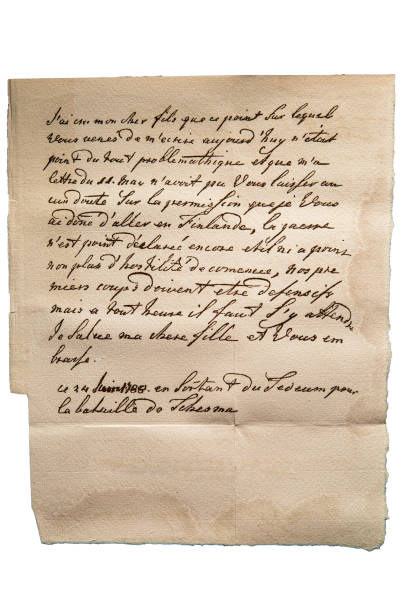 J'ai cru mon cher fils que ce point sur lequel
vous venes de m'ecrire aujourd'huy n'etait
point du tout problemathique et que m'a
lettre du 11. may n'avoit peu vous laisser au
cun doute sur la permission que je vous
ai donc d'aller en Finlande, la guerre
n'est point declareé encore et il ni a point
non plus d'hostilité de comencés, nos pre
miers corps doivent etre defensifs
mais a tout heure il faut s'y attendre
Je salue ma chere fille et vous em
brasse.
ce 24 Juin 1788. en sortant du Tedeum pour
la bataille de Tchesma